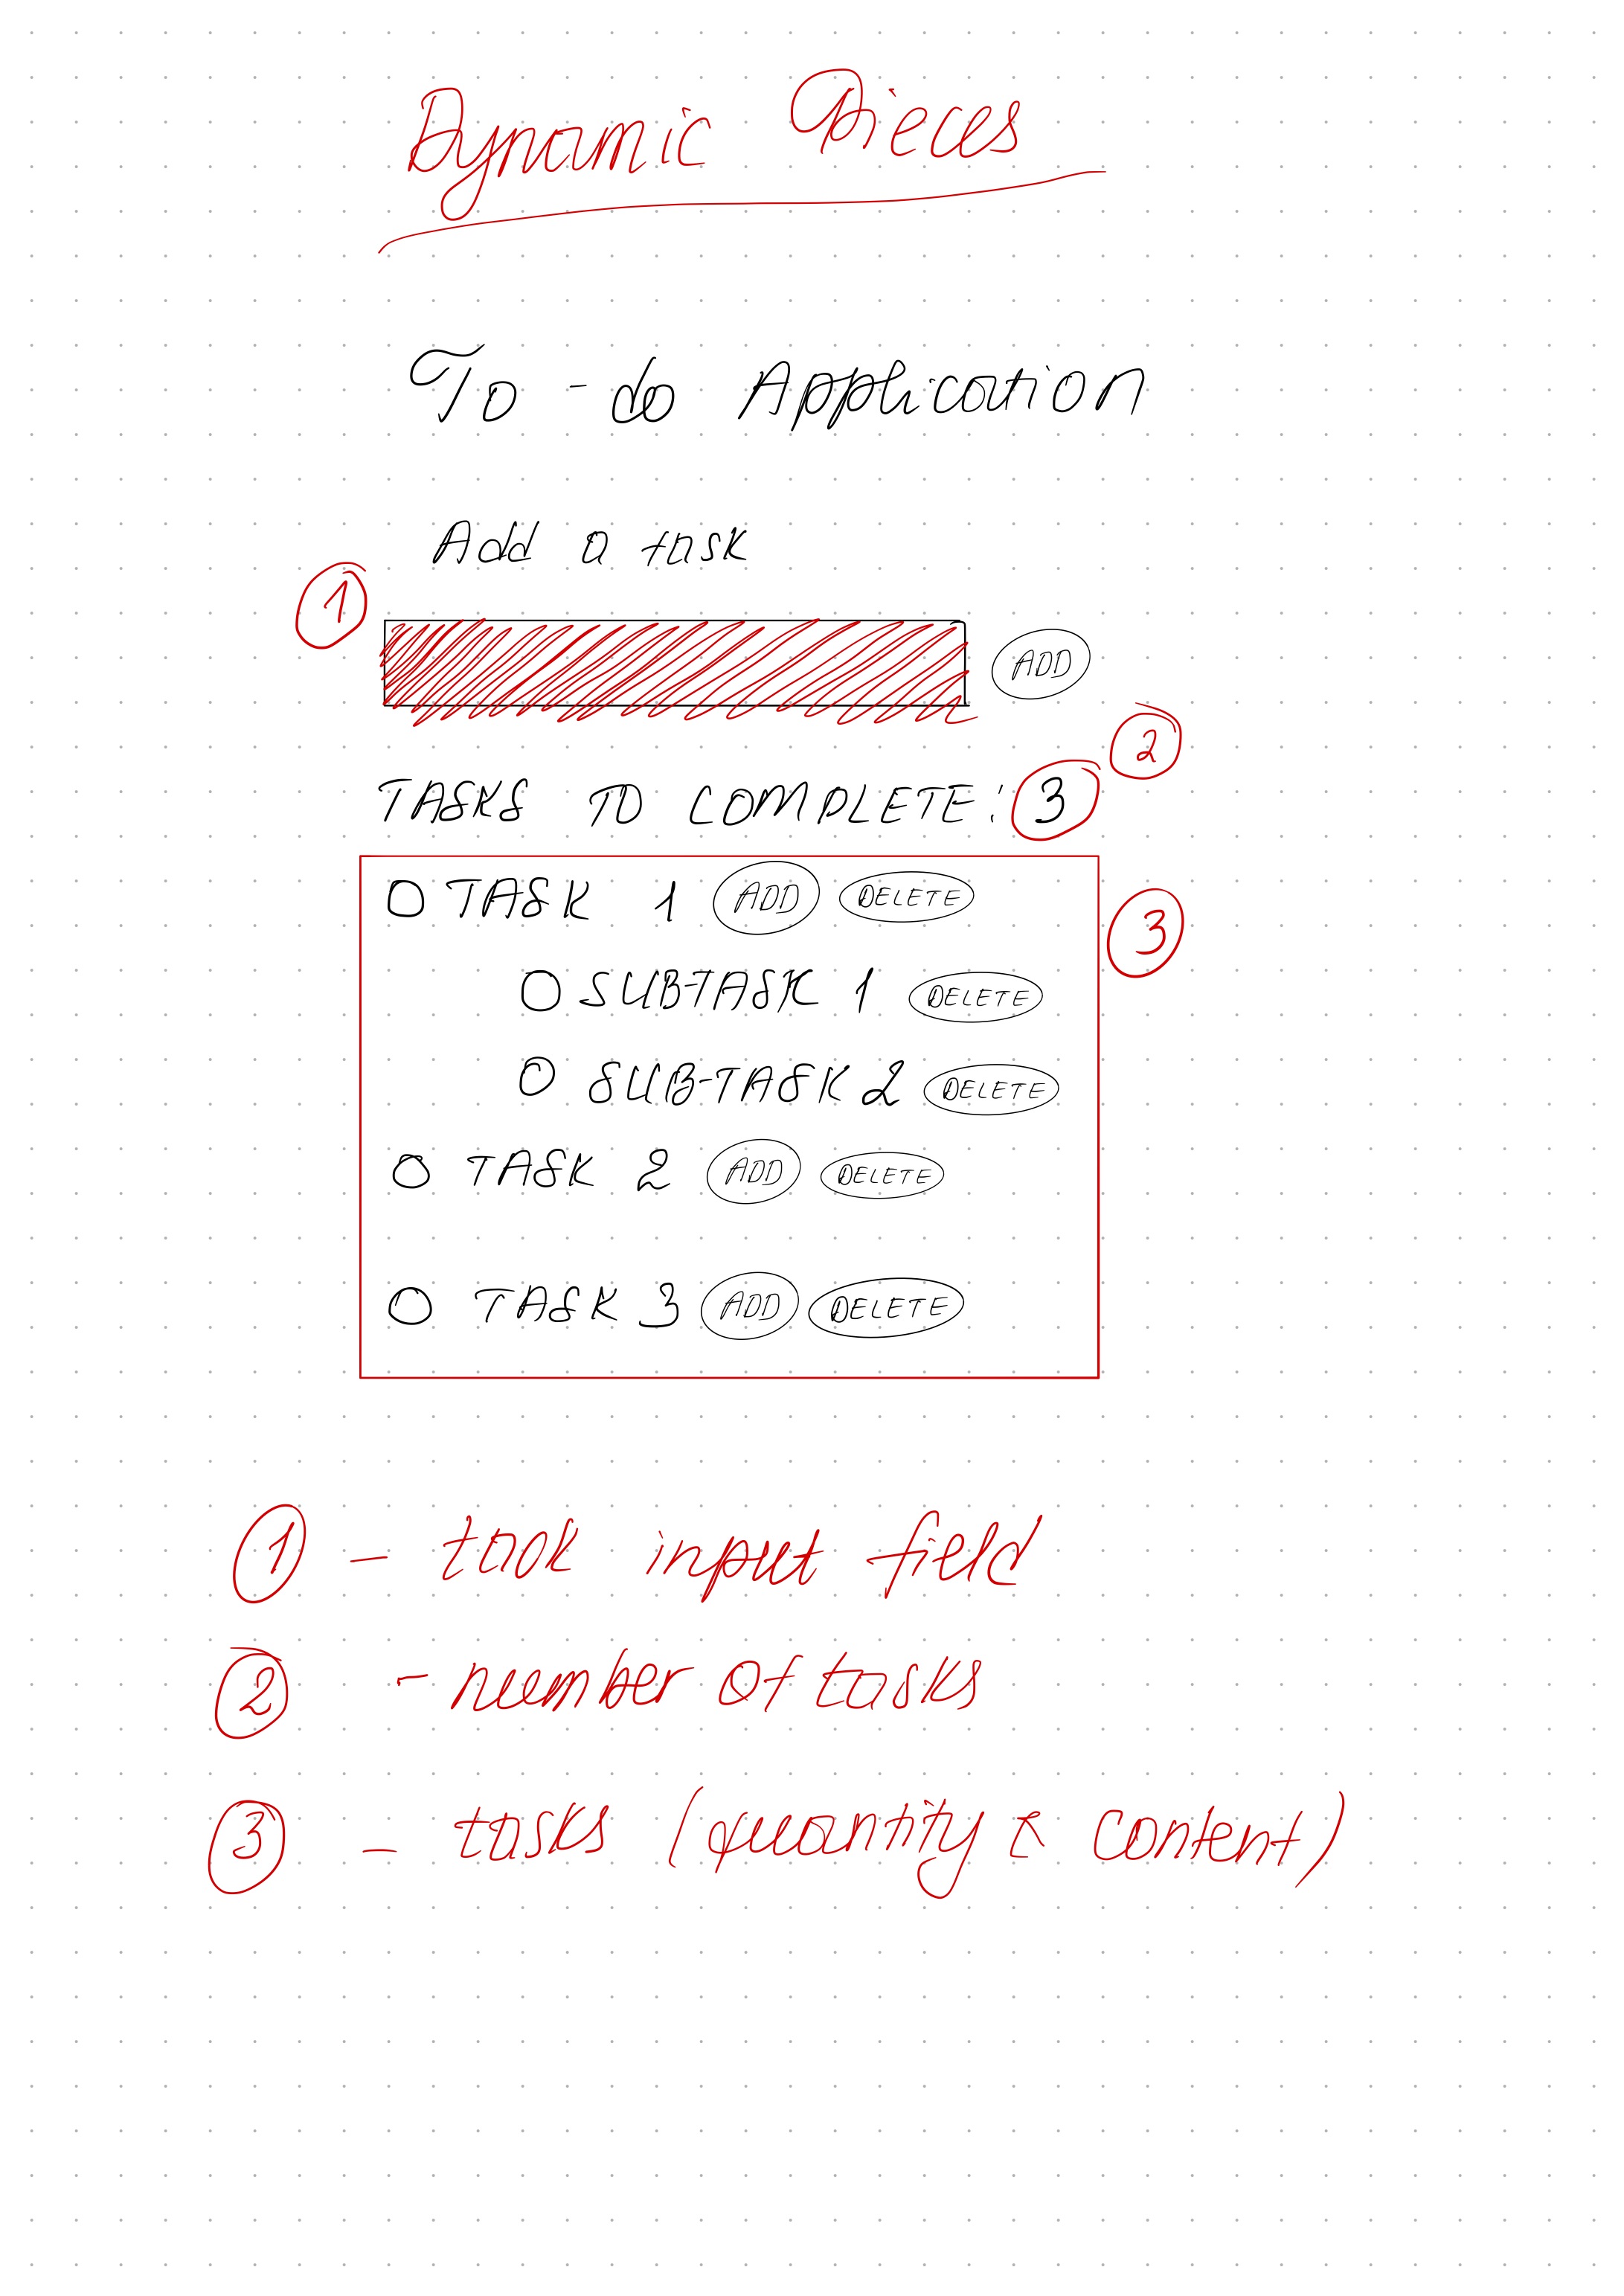 Dynamic Pieces
To-do Application
Add a task
1
ADD
2
TASKS TO COMPLETE: 3
TASK 1 ADD DELETE
3
SUB-TASK 1 DELETE
SUB-TASK 2 DELETE
TASK 2 ADD DELETE
TASK 3 ADD DELETE
1 - task input field
2 - number of tasks
3 - tasks (quantity & content)